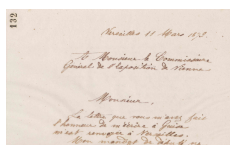 132
Versailles 11 Mars 1873.
A Monsieur le Commissaire
Général de l'Exposition de Vienne
Monsieur,
La lettre que vous m'avez fait
l'honneur de m'écrire à Guise
m'est renvoyée à Versailles.
Mon mandat de député ne